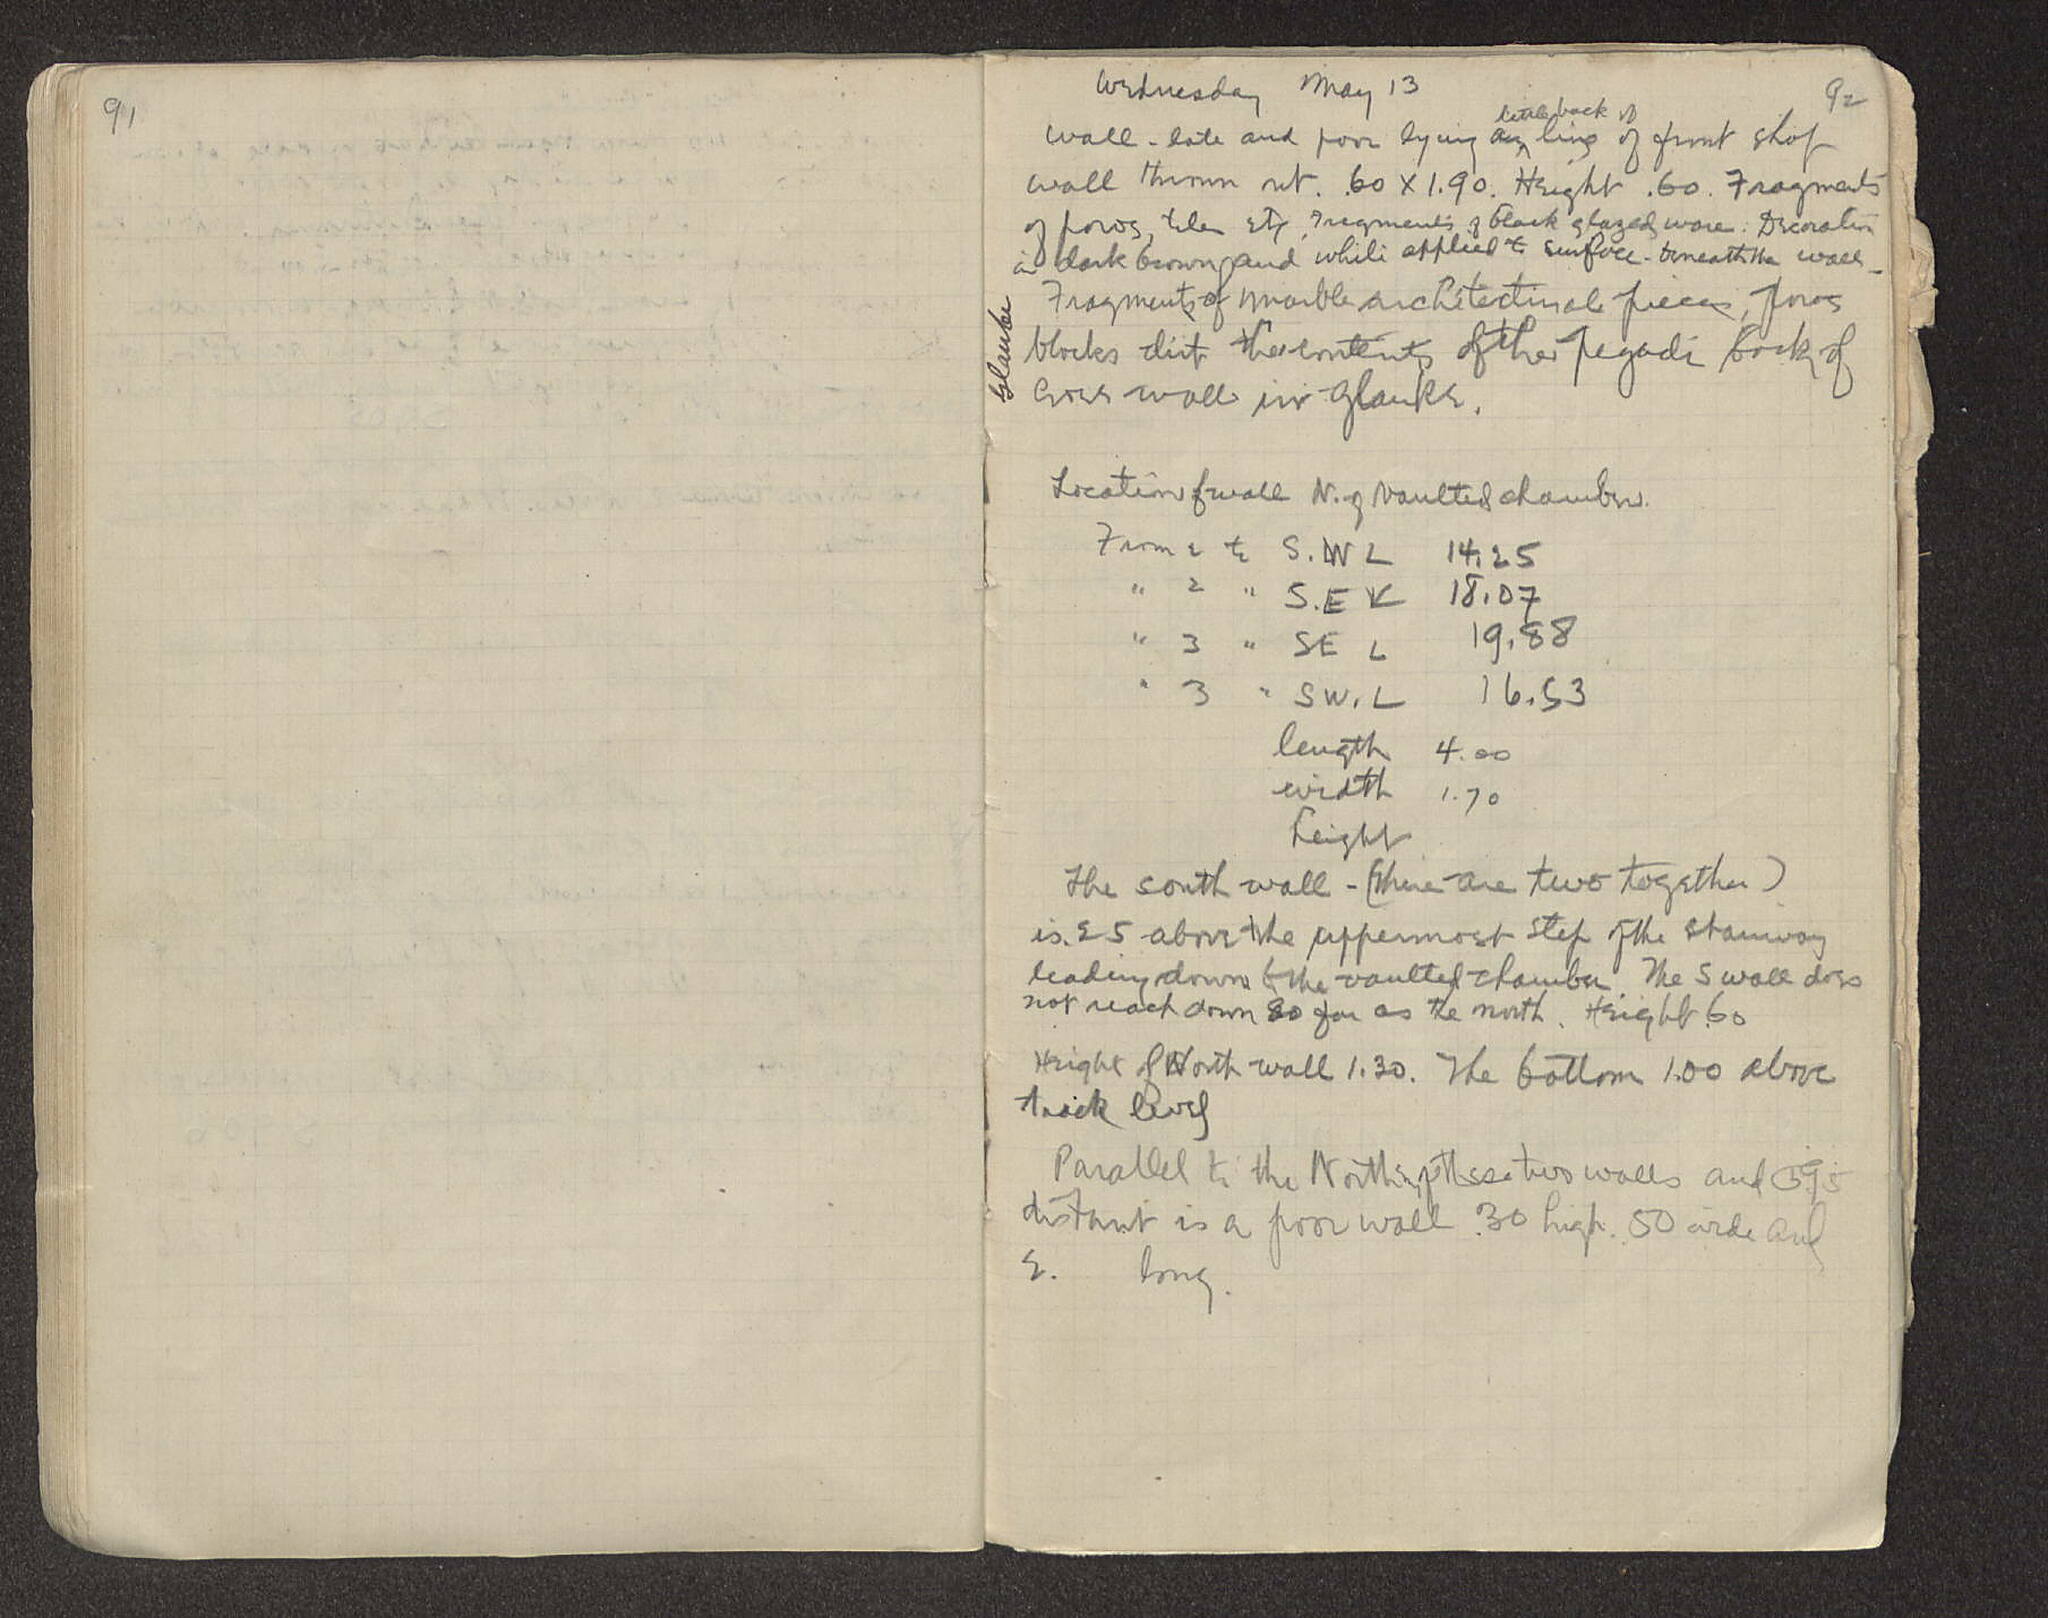 91
92
Wednesday May 13
little back of
Wall - late and poor lying on line of front shop
wall thrown out. .60 X 1.90. Height .60. Fragments
of poros, tiles etc. Fragments of black glazed ware. Decoration
in dark brown and white applied to surface - beneath the wall -
Fragments of marble architectural pieces, poros
blocks dirt the contents of the pegadi back of
cross wall in Glauke.
Glauke
Location of wall N. of Vaulted chamber.
From 2 to S.W L 14.25
" 2 " S.E K 18.07
" 3 " SE L 19.88
" 3 " SW. L 16.53
length 4.00
width 1.70
height
The south wall - (there are two together)
is .25 above the uppermost step of the stairway
leading down to the vaulted chamber. The S wall does
not reach down so far as the north. Height .60
Height of North wall 1.30. The bottom 1.00 above
track level
Parallel to the North of these two walls and
distant is a poor wall .30 high .50 wide and
2. long.